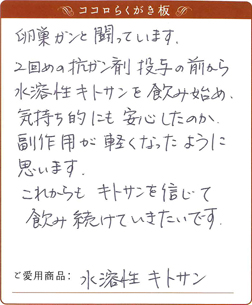 ココロらくがき板
卵巣ガンと闘っています.
2回めの抗ガン剤 投与の前から
水溶性キトサンを飲み始め.
気持ち的にも安心したのか.
副作用が軽くなったように
思います.
これからも キトサンを信じて
飲み続けていきたいです.
ご愛用商品: 水溶性 キトサン